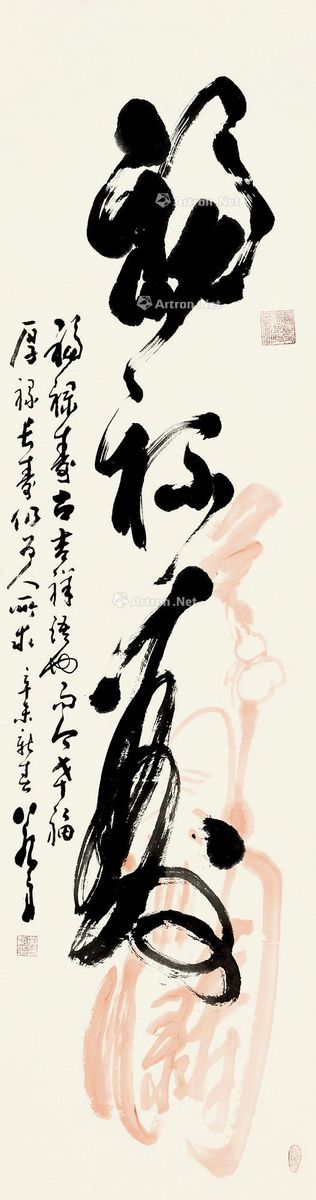 福禄寿
福禄寿古吉祥语也而今幸福
厚禄长寿仍为人所求 辛未新春
Artron.Net
Artron.Net
Artron.Net
Artron.Net